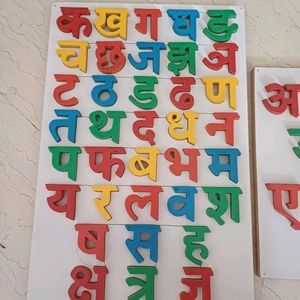 क ख ग घ ङ
च छ ज झ ञ
ट ठ ड ढ ण
त थ द ध न
प फ ब भ म
य र ल व श
ष स ह
क्ष त्र ज्ञ
अ
ए